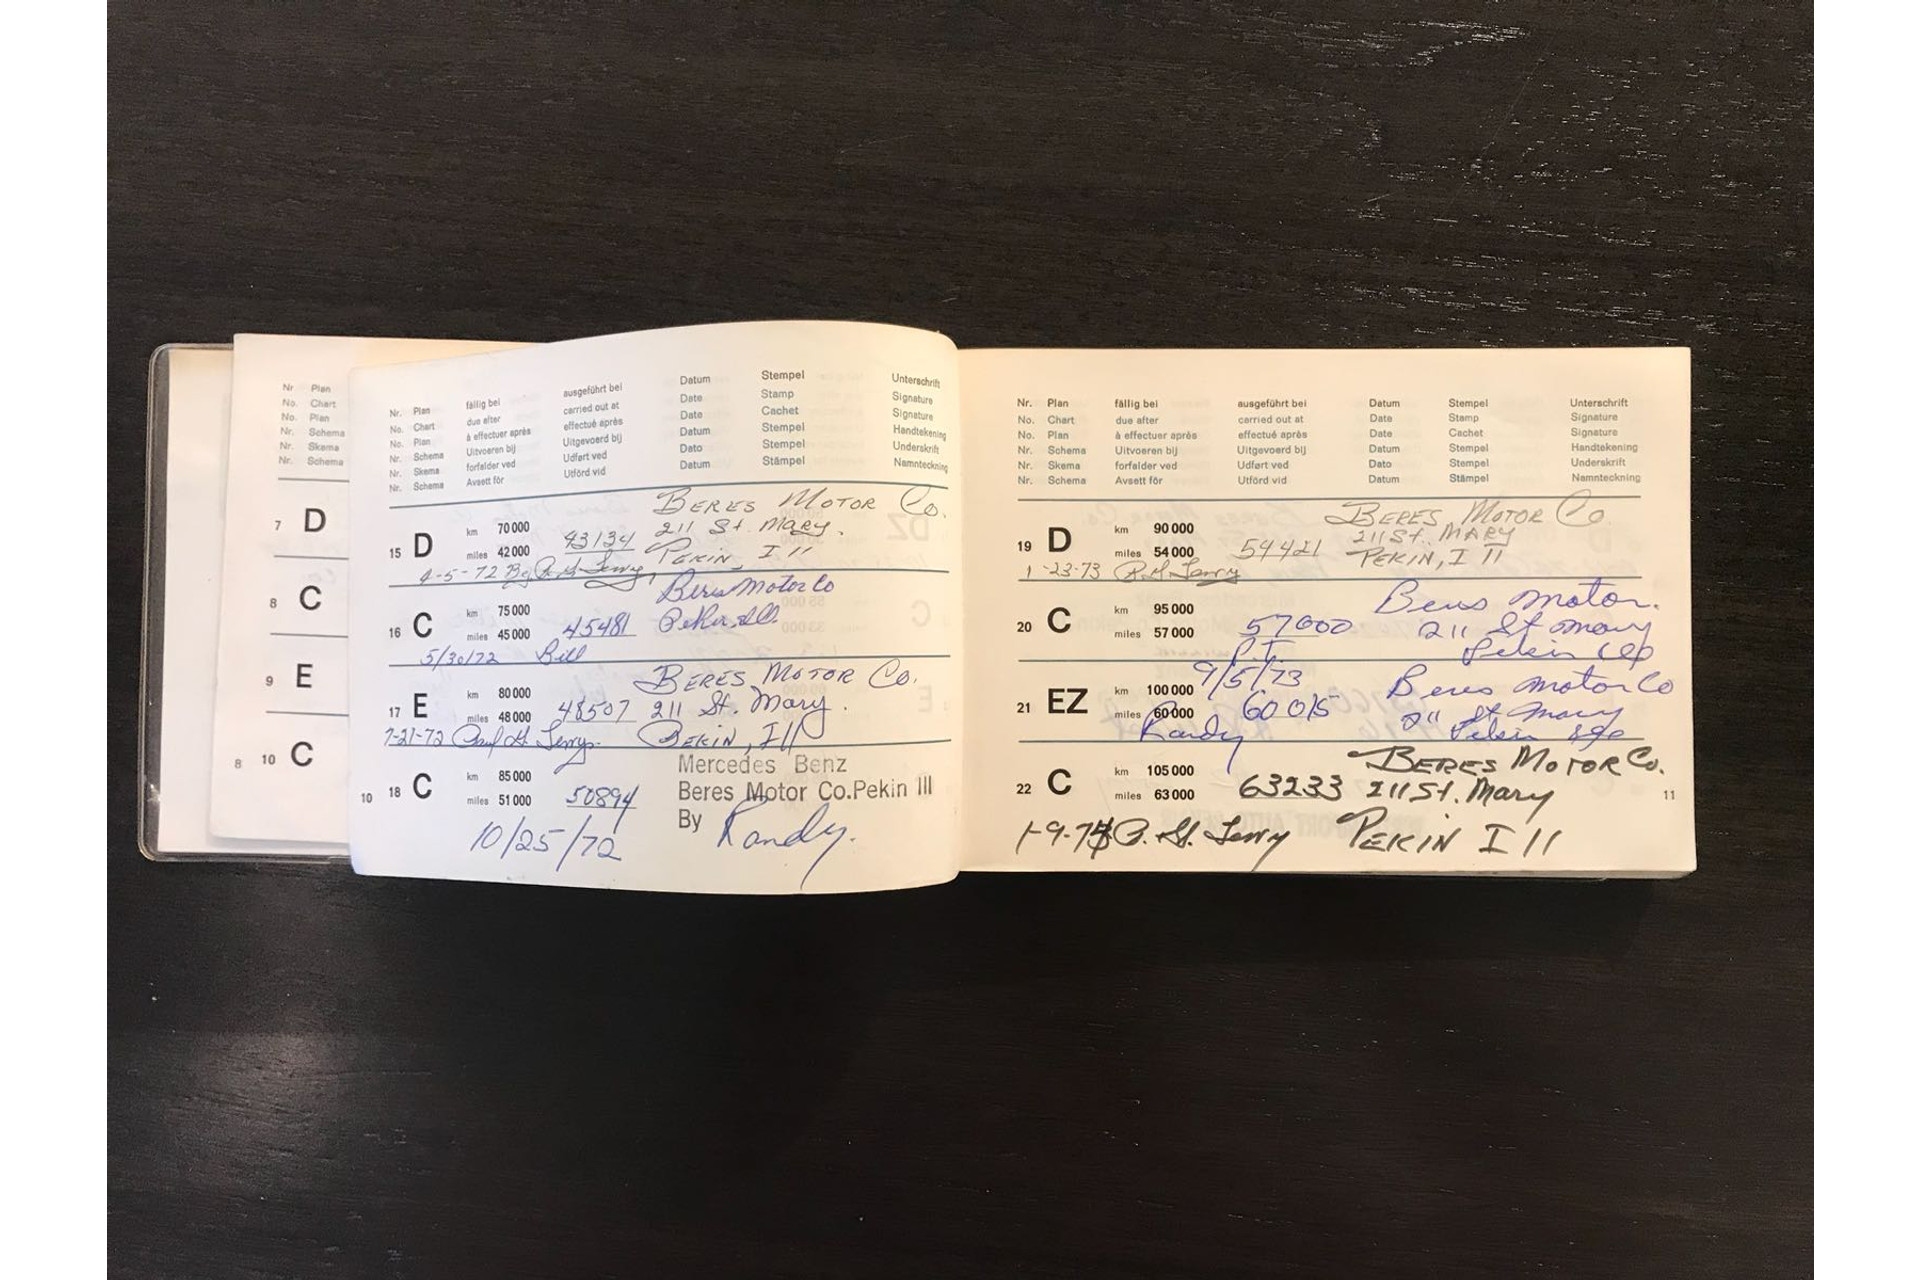 Nr Plan
No. Chart
No. Plan
Nr. Schema
Nr. Skema
Nr. Schema
7 D
8 C
9 E
8 10 C
Nr. Plan fällig bei ausgeführt bei Datum Stempel Unterschrift
No. Chart due after carried out at Date Stamp Signature
No. Plan à effectuer après effectué après Date Cachet Signature
Nr. Schema Uitvoeren bij Uitgevoerd bij Datum Stempel Handtekening
Nr. Skema forfalder ved Udført ved Dato Stempel Underskrift
Nr. Schema Avsett för Utförd vid Datum Stämpel Namnteckning
BERES MOTOR Co.
15 D km 70 000 211 St. MARY.
miles 42 000 43134 PEKIN, Ill
4-5-72 By
Beres Motor Co
16 C km 75 000
miles 45 000 45481 Pekin, Ill.
5/30/72 Bill
BERES MOTOR Co.
17 E km 80 000 211 St. Mary.
miles 48 000 48507
7-21-72 PEKIN, Ill
Mercedes Benz
18 C km 85 000 Beres Motor Co.Pekin Ill
10 miles 51 000 50894 By Randy.
10/25/72
Nr. Plan fällig bei ausgeführt bei Datum Stempel Unterschrift
No. Chart due after carried out at Date Stamp Signature
No. Plan à effectuer après effectué après Date Cachet Signature
Nr. Schema Uitvoeren bij Uitgevoerd bij Datum Stempel Handtekening
Nr. Skema forfalder ved Udført ved Dato Stempel Underskrift
Nr. Schema Avsett för Utförd vid Datum Stämpel Namnteckning
BERES MOTOR Co
19 D km 90 000 211 St. MARY
miles 54 000 54421 PEKIN, Ill
1-23-73
Beres Motor.
20 C km 95 000
miles 57 000 57000 211 St Mary
P.T. Pekin
9/5/73
21 EZ km 100 000 Beres Motor Co
miles 60 000 60015 211 St Mary
Randy Pekin
BERES MOTOR Co.
22 C km 105 000
miles 63 000 63233 211 St. Mary 11
PEKIN Ill